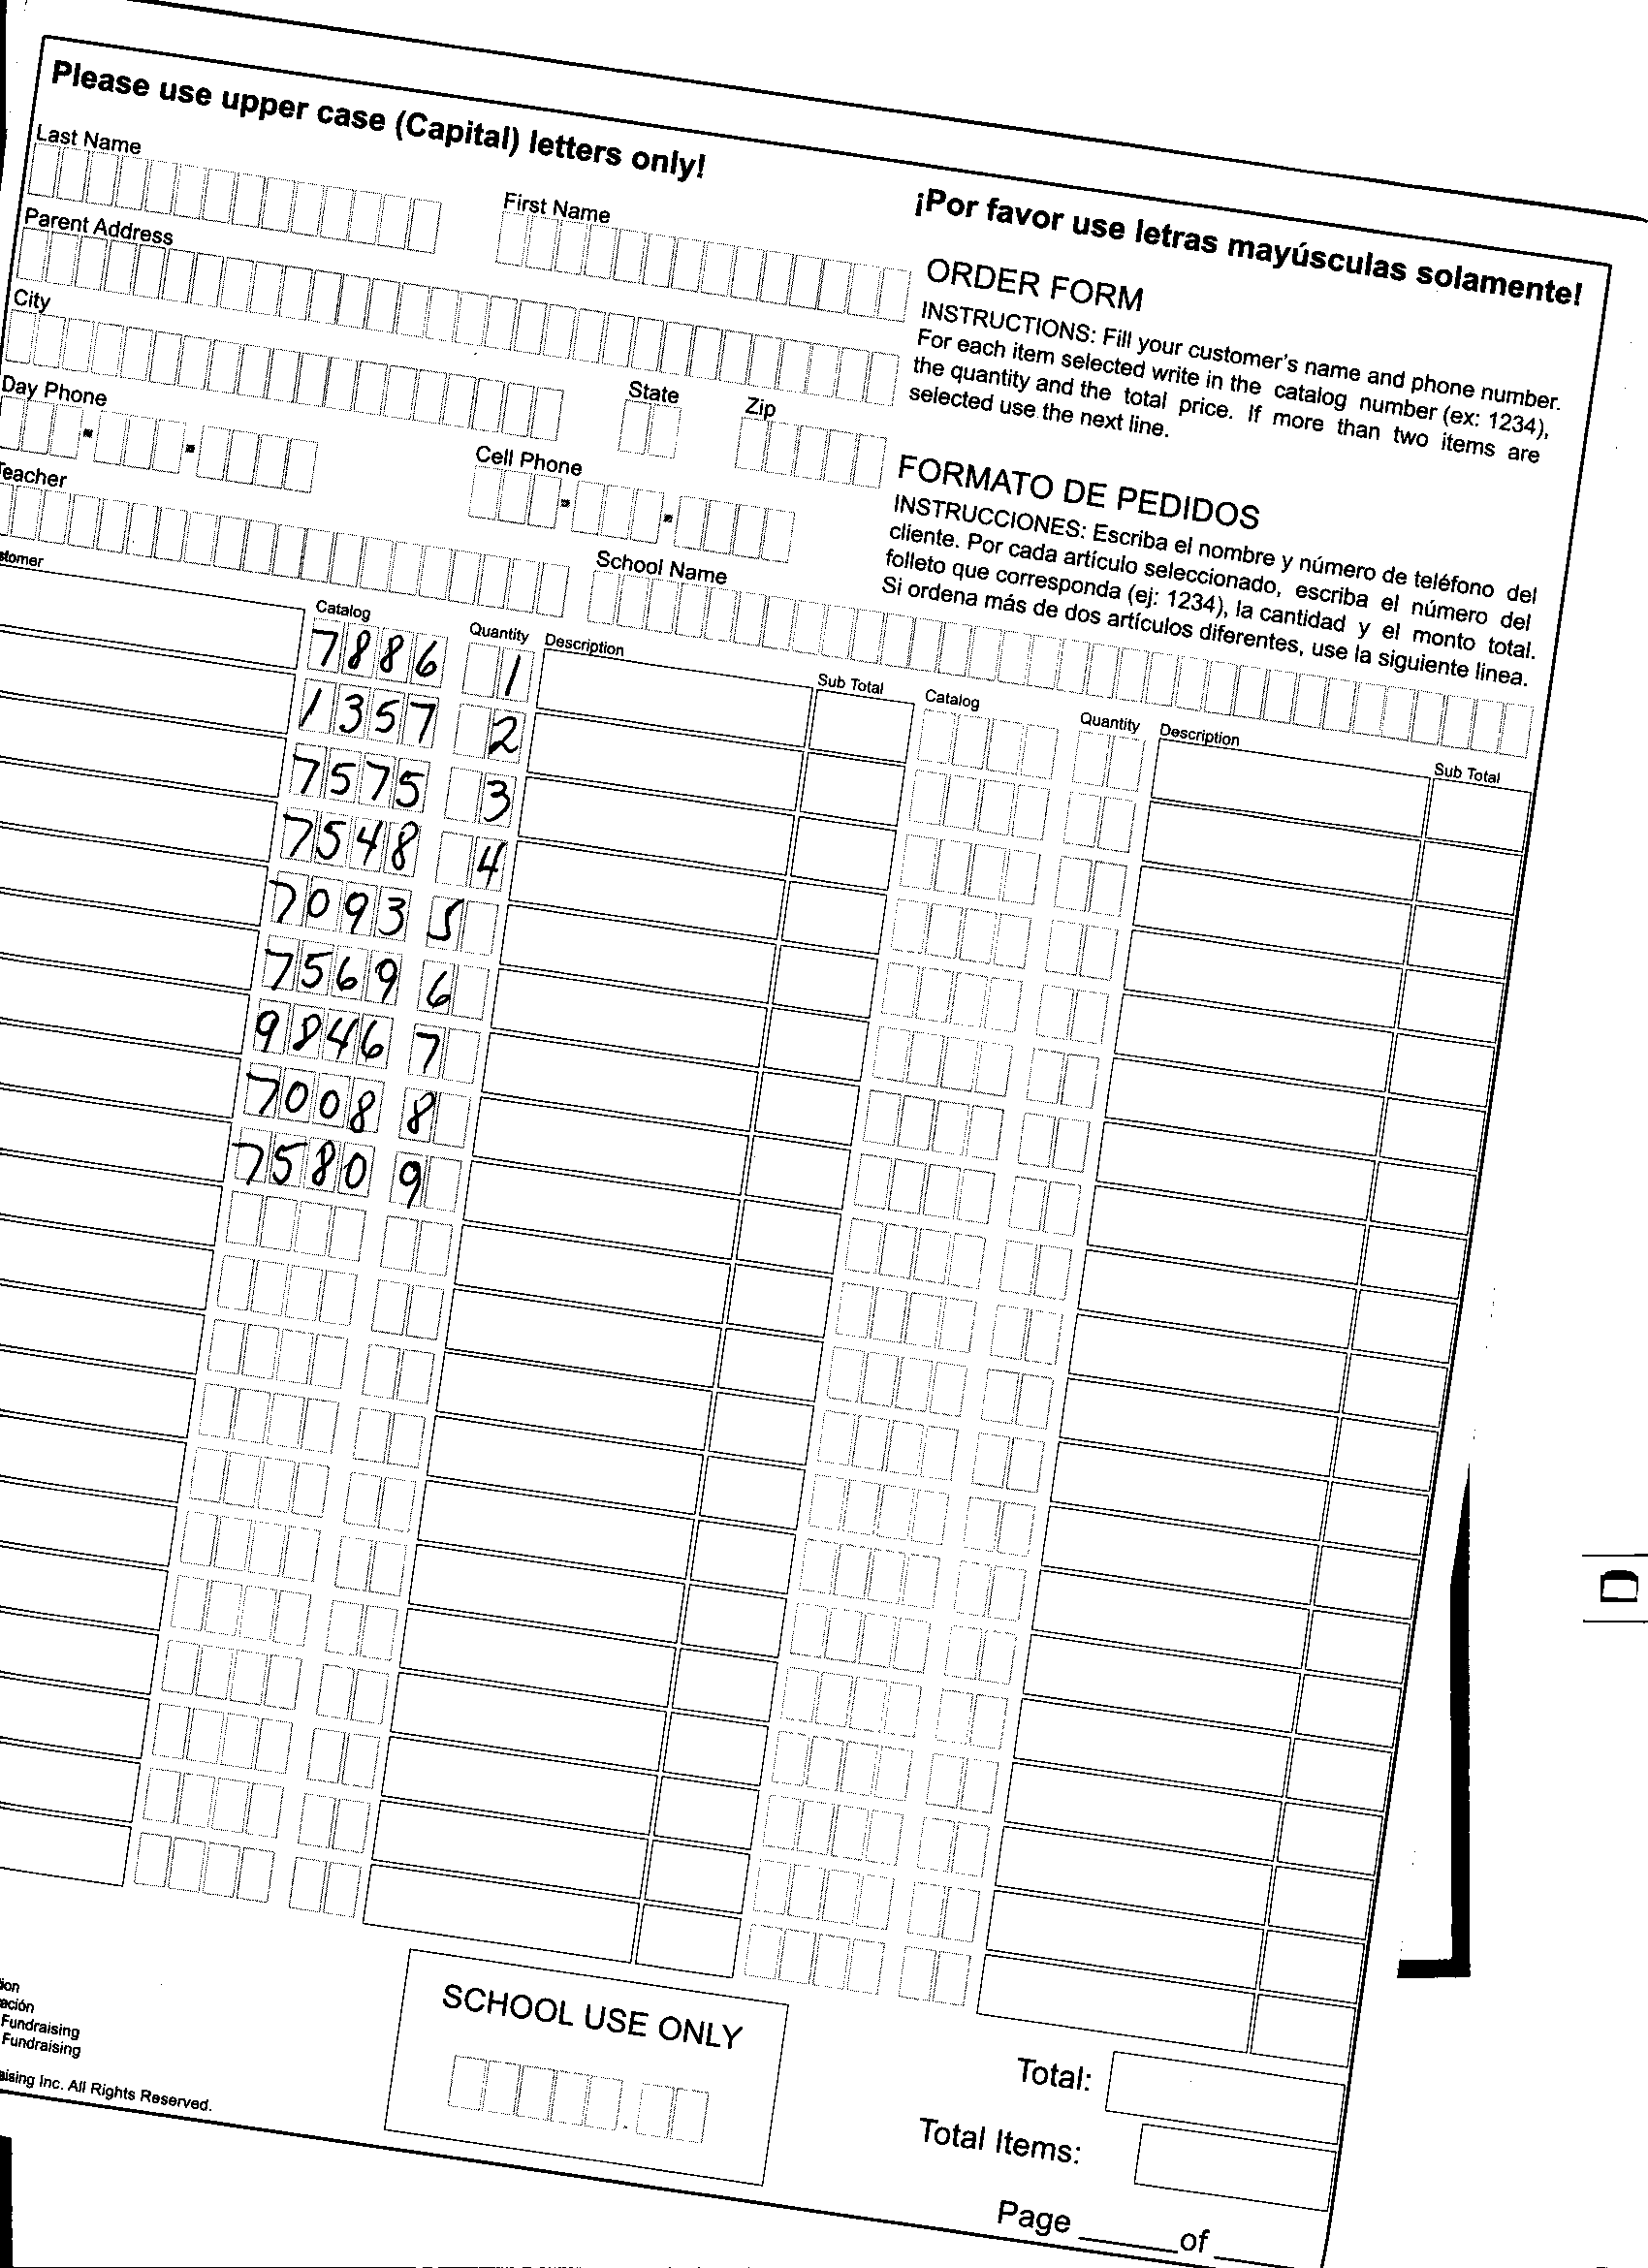 Please use upper case (Capital) letters only!
¡Por favor use letras mayúsculas solamente!
Last Name
First Name
Parent Address
City
State
Zip
Day Phone
Cell Phone
Teacher
School Name
ORDER FORM
INSTRUCTIONS: Fill your customer's name and phone number.
For each item selected write in the catalog number (ex: 1234),
the quantity and the total price. If more than two items are
selected use the next line.
FORMATO DE PEDIDOS
INSTRUCCIONES: Escriba el nombre y número de teléfono del
cliente. Por cada artículo seleccionado, escriba el número del
folleto que corresponda (ej: 1234), la cantidad y el monto total.
Si ordena más de dos artículos diferentes, use la siguiente linea.
stomer Catalog Quantity Description Sub Total Catalog Quantity Description Sub Total
7886 1
1357 2
7575 3
7548 4
7093 5
7569 6
9846 7
7008 8
7580 9
SCHOOL USE ONLY
Total:
Total Items:
Page of
ion
ación
Fundraising
Fundraising
aising Inc. All Rights Reserved.
D